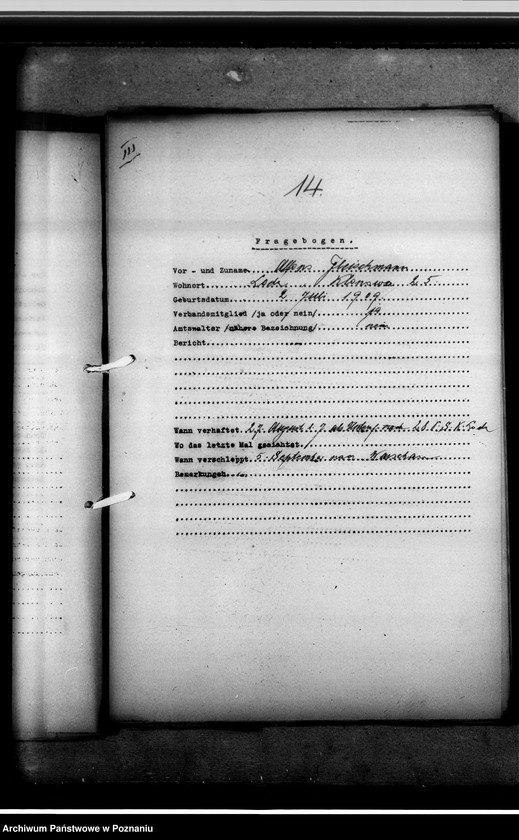 III
14.
Fragebogen.
Vor - und Zuname Alfons Fleischmann
Wohnort Lodz, 25
Geburtsdatum 2 Juli 1909
Verbandsmitglied /ja oder nein/ ja
Amtswalter /nähere Bezeichnung/ nein
Bericht
Wann verhaftet. 27. August d. J. als
Wo das letzte Mal gesichtet. /
Wann verschleppt. 5. September Warschau
Bemerkungen
Archiwum Państwowe w Poznaniu